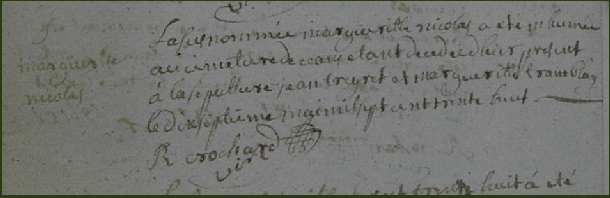 marguerite
nicolas
La susnommée marguerille nicolas a été inhumée
au cimetiere de ceans etant decedée d'hier present
à la sépulture jean freyret et marguerilte tramblay
le dixseptieme may mil sept cent trente huit
R crochard
trente huit à été